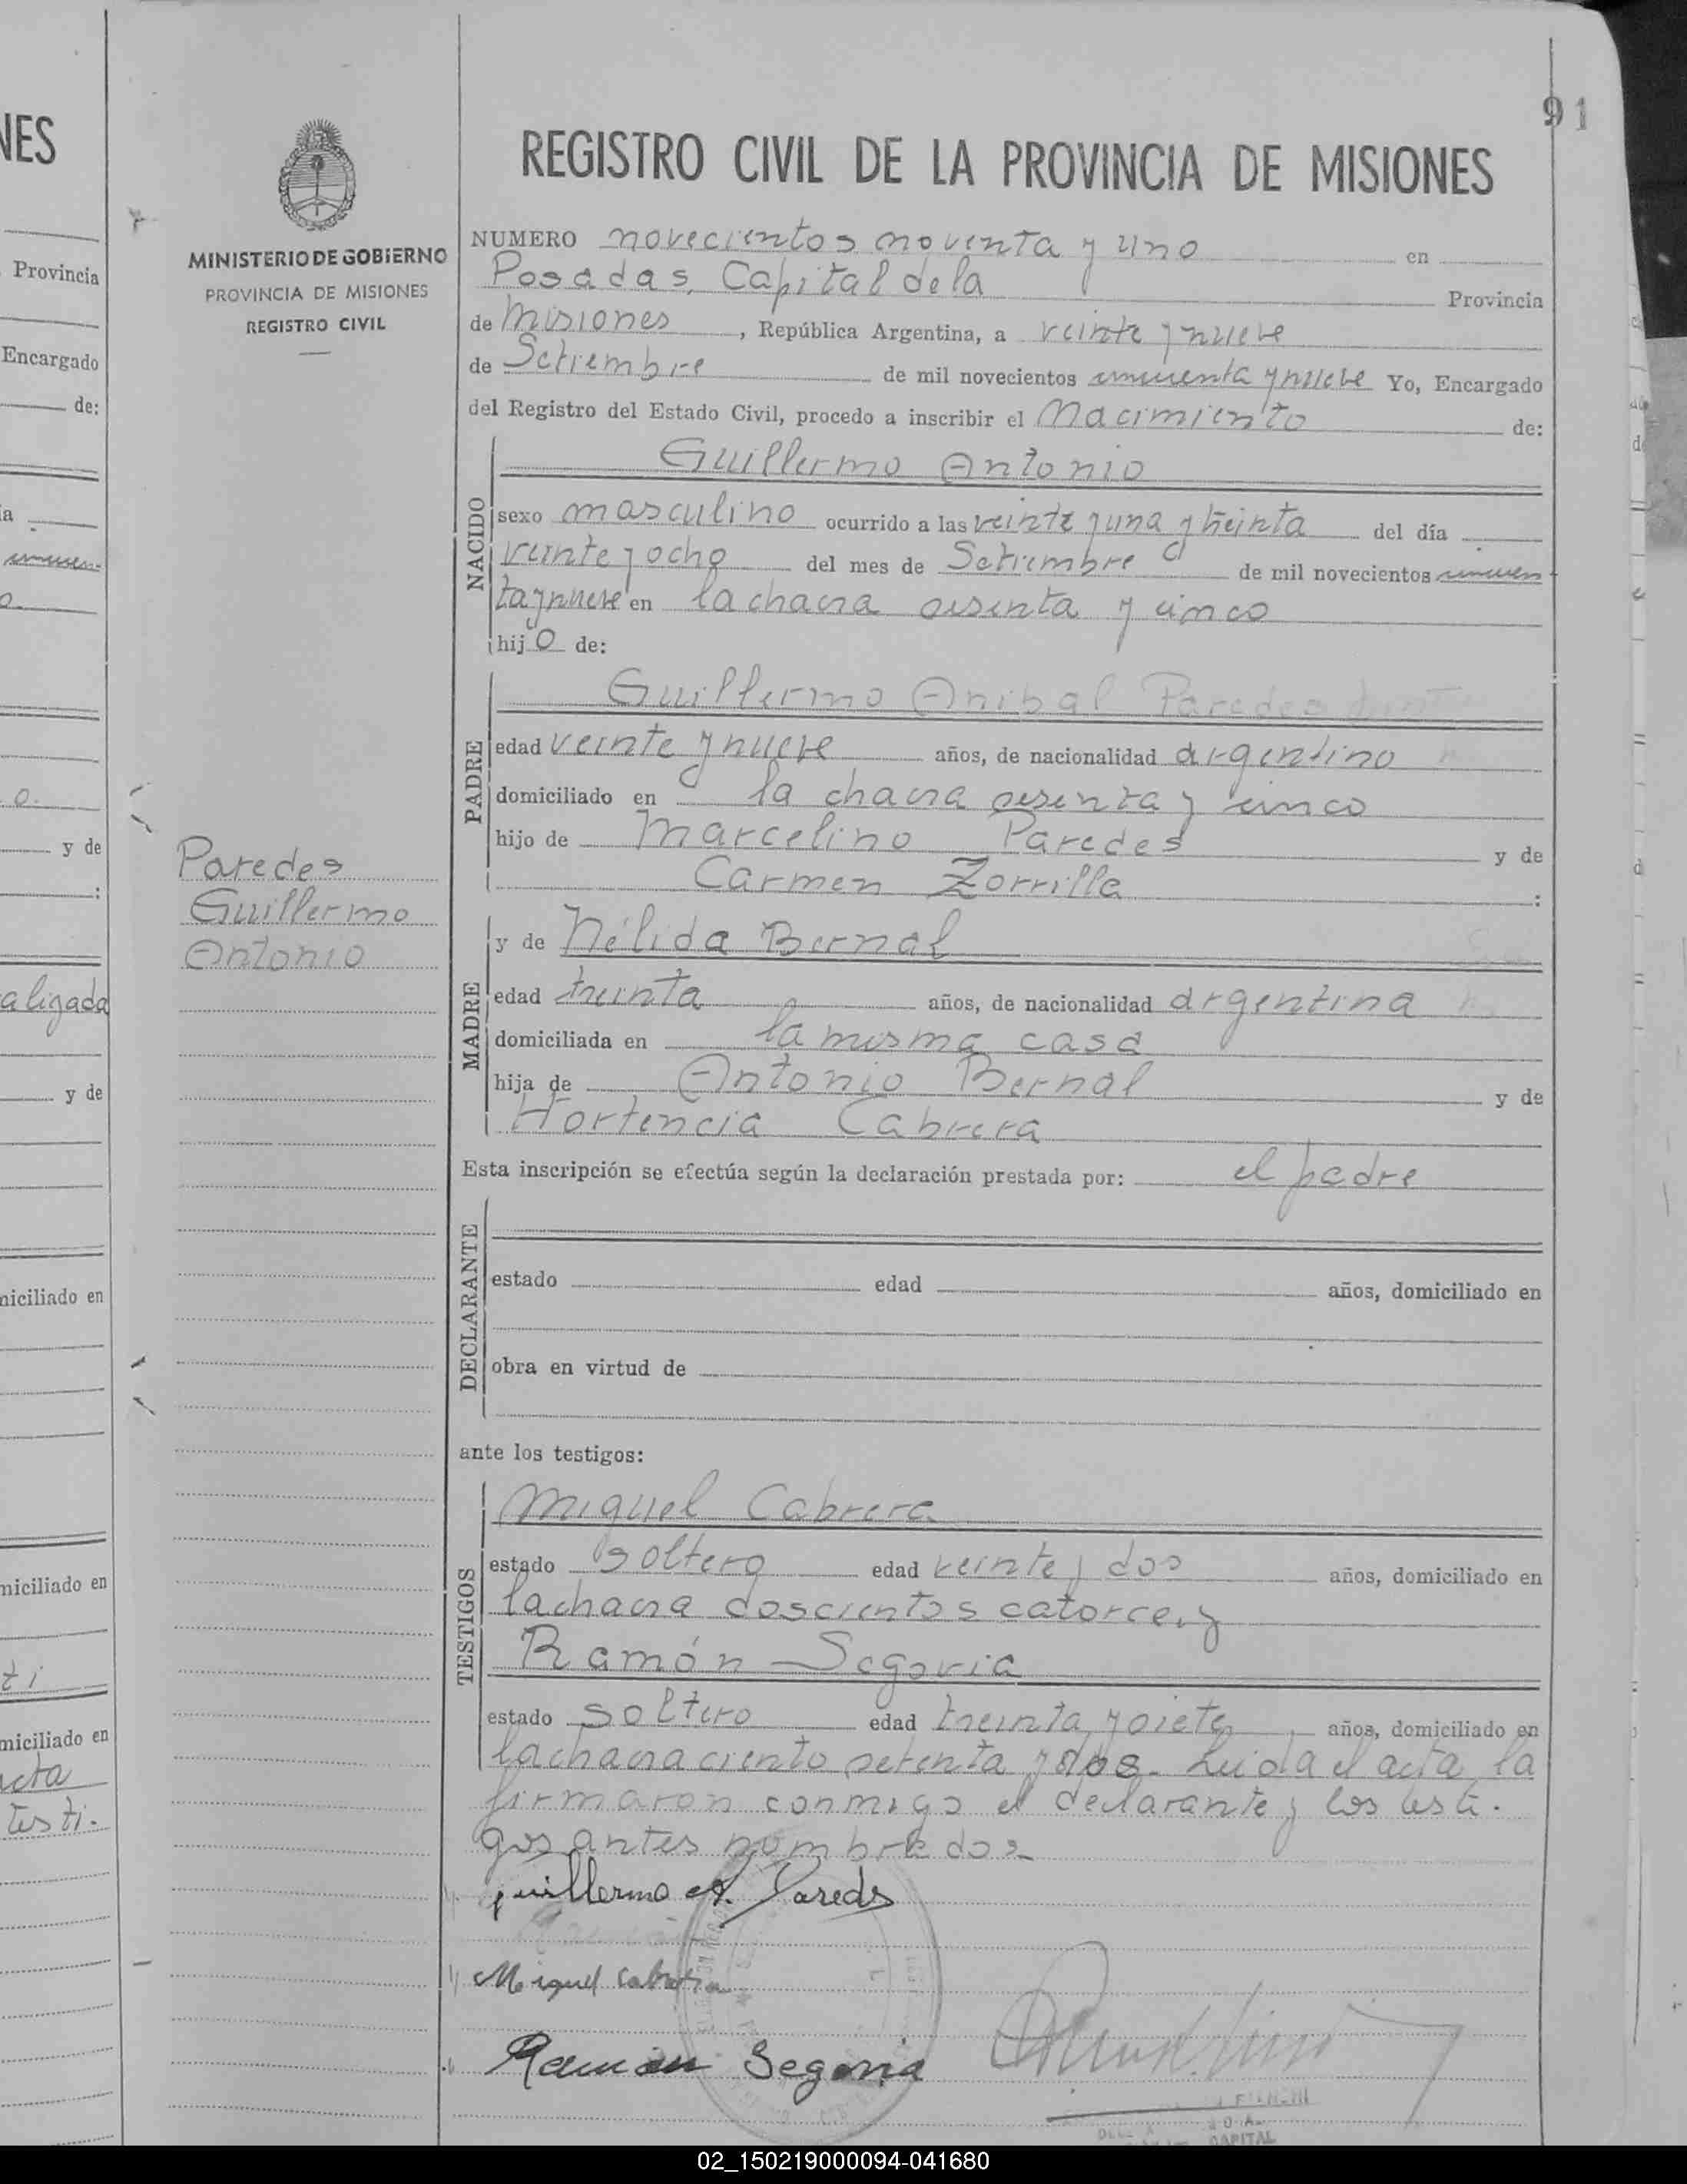 91
REGISTRO CIVIL DE LA PROVINCIA DE MISIONES
MINISTERIO DE GOBIERNO
PROVINCIA DE MISIONES
REGISTRO CIVIL
NUMERO novecientos noventa y uno en
Posadas, Capital de la Provincia
de Misiones, República Argentina, a veinte y nueve
de Setiembre de mil novecientos cincuenta y nueve Yo, Encargado
del Registro del Estado Civil, procedo a inscribir el Nacimiento de:
NACIDO
Guillermo Antonio
sexo masculino ocurrido a las veinte y una y treinta del día
veinte y ocho del mes de Setiembre de mil novecientos cincuen
ta y nueve en la chacra sesenta y cinco
hijo de:
PADRE
Guillermo Anibal Paredes
edad veinte y nueve años, de nacionalidad argentino
domiciliado en la chacra sesenta y cinco
hijo de Marcelino Paredes y de
Carmen Zorrilla :
Paredes
Guillermo
Antonio
MADRE
y de Nélida Bernal
edad treinta años, de nacionalidad argentina
domiciliada en la misma casa
hija de Antonio Bernal y de
Hortencia Cabrera
Esta inscripción se efectúa según la declaración prestada por: el padre
DECLARANTE
estado edad años, domiciliado en
obra en virtud de
ante los testigos:
TESTIGOS
Miguel Cabrera
estado soltero edad veinte y dos años, domiciliado en
la chacra doscientos catorce, y
Ramón Segovia
estado soltero edad treinta y siete años, domiciliado en
la chacra ciento setenta y dos. Leida el acta la
firmaron conmigo el declarante y los testi-
gos antes nombrados
Guillermo A. Paredes
Miguel Cabrera
Ramón Segovia
CAPITAL
NES
Provincia
Encargado
de:
y de
alizada
y de
niciliado en
niciliado en
ti
niciliado en
acta
testi-
02_150219000094-041680